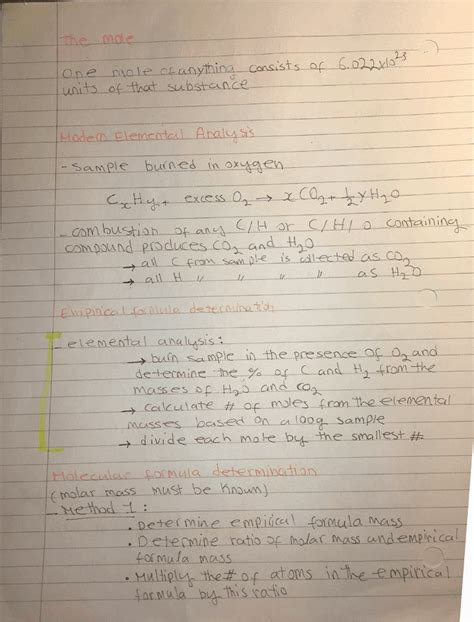 The mole
One mole of anything consists of 6.022x10²³
units of that substance
Modern Elemental Analysis
- Sample burned in oxygen
CxHy + excess O₂ → xCO₂ + ½ y H₂O
- combustion of any C/H or C/H/O containing
compound produces CO₂ and H₂O
→ all C from sample is collected as CO₂
→ all H " " " " as H₂O
Empirical formula determination
- elemental analysis:
→ burn sample in the presence of O₂ and
determine the % of C and H₂ from the
masses of H₂O and CO₂
→ calculate # of moles from the elemental
masses based on a 100g sample
→ divide each mole by the smallest #
Molecular formula determination
(molar mass must be known)
- Method 1:
• Determine empirical formula mass
• Determine ratio of molar mass and empirical
formula mass
• Multiply the # of atoms in the empirical
formula by this ratio